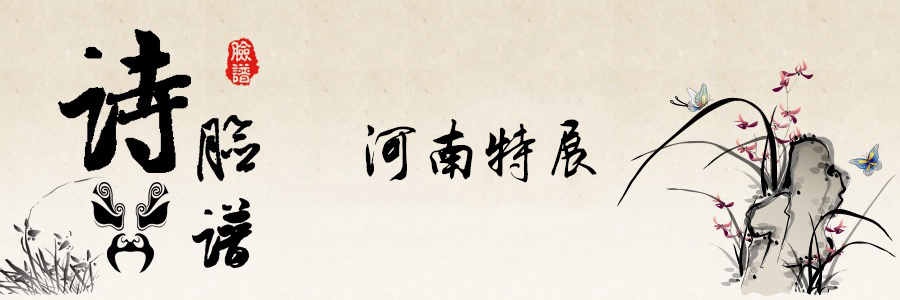 诗
脸
谱
臉譜
河南特展